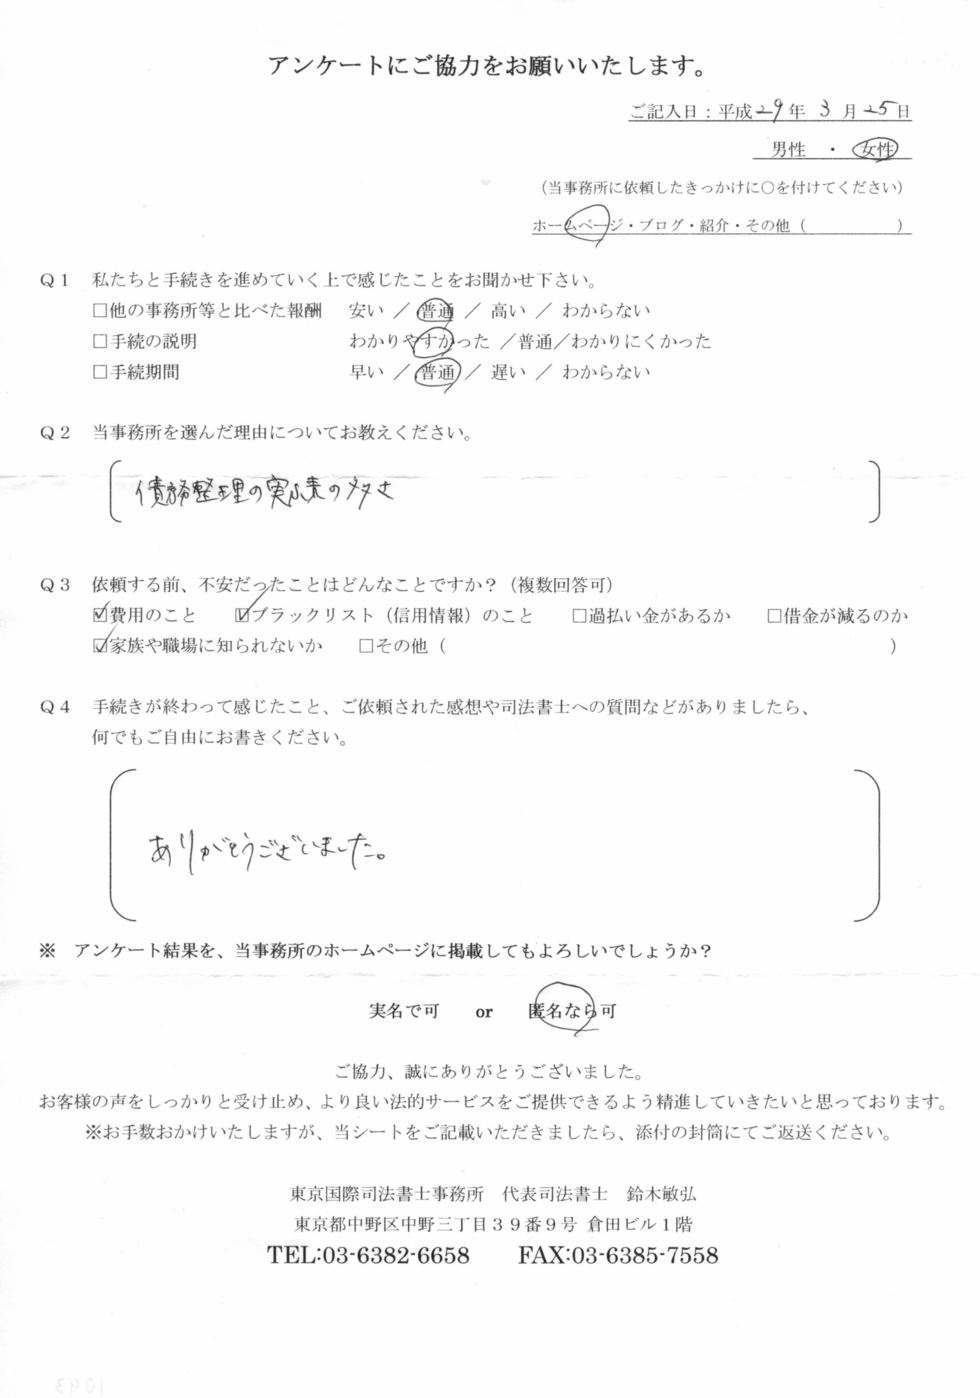 アンケートにご協力をお願いいたします。
ご記入日：平成29年 3月25日
男性 ・ 女性
（当事務所に依頼したきっかけに○を付けてください）
ホームページ・ブログ・紹介・その他（　　　　）
Q1 私たちと手続きを進めていく上で感じたことをお聞かせ下さい。
□他の事務所等と比べた報酬 安い ／ 普通 ／ 高い ／ わからない
□手続の説明 わかりやすかった ／普通／わかりにくかった
□手続期間 早い ／ 普通 ／ 遅い ／ わからない
Q2 当事務所を選んだ理由についてお教えください。
債務整理の実績の多さ
Q3 依頼する前、不安だったことはどんなことですか？（複数回答可）
☑費用のこと ☑ブラックリスト（信用情報）のこと □過払い金があるか □借金が減るのか
☑家族や職場に知られないか □その他（　　　　）
Q4 手続きが終わって感じたこと、ご依頼された感想や司法書士への質問などがありましたら、
何でもご自由にお書きください。
ありがとうございました。
※ アンケート結果を、当事務所のホームページに掲載してもよろしいでしょうか？
実名で可 or 匿名なら可
ご協力、誠にありがとうございました。
お客様の声をしっかりと受け止め、より良い法的サービスをご提供できるよう精進していきたいと思っております。
※お手数おかけいたしますが、当シートをご記載いただきましたら、添付の封筒にてご返送ください。
東京国際司法書士事務所 代表司法書士 鈴木敏弘
東京都中野区中野三丁目39番9号 倉田ビル1階
TEL:03-6382-6658 FAX:03-6385-7558